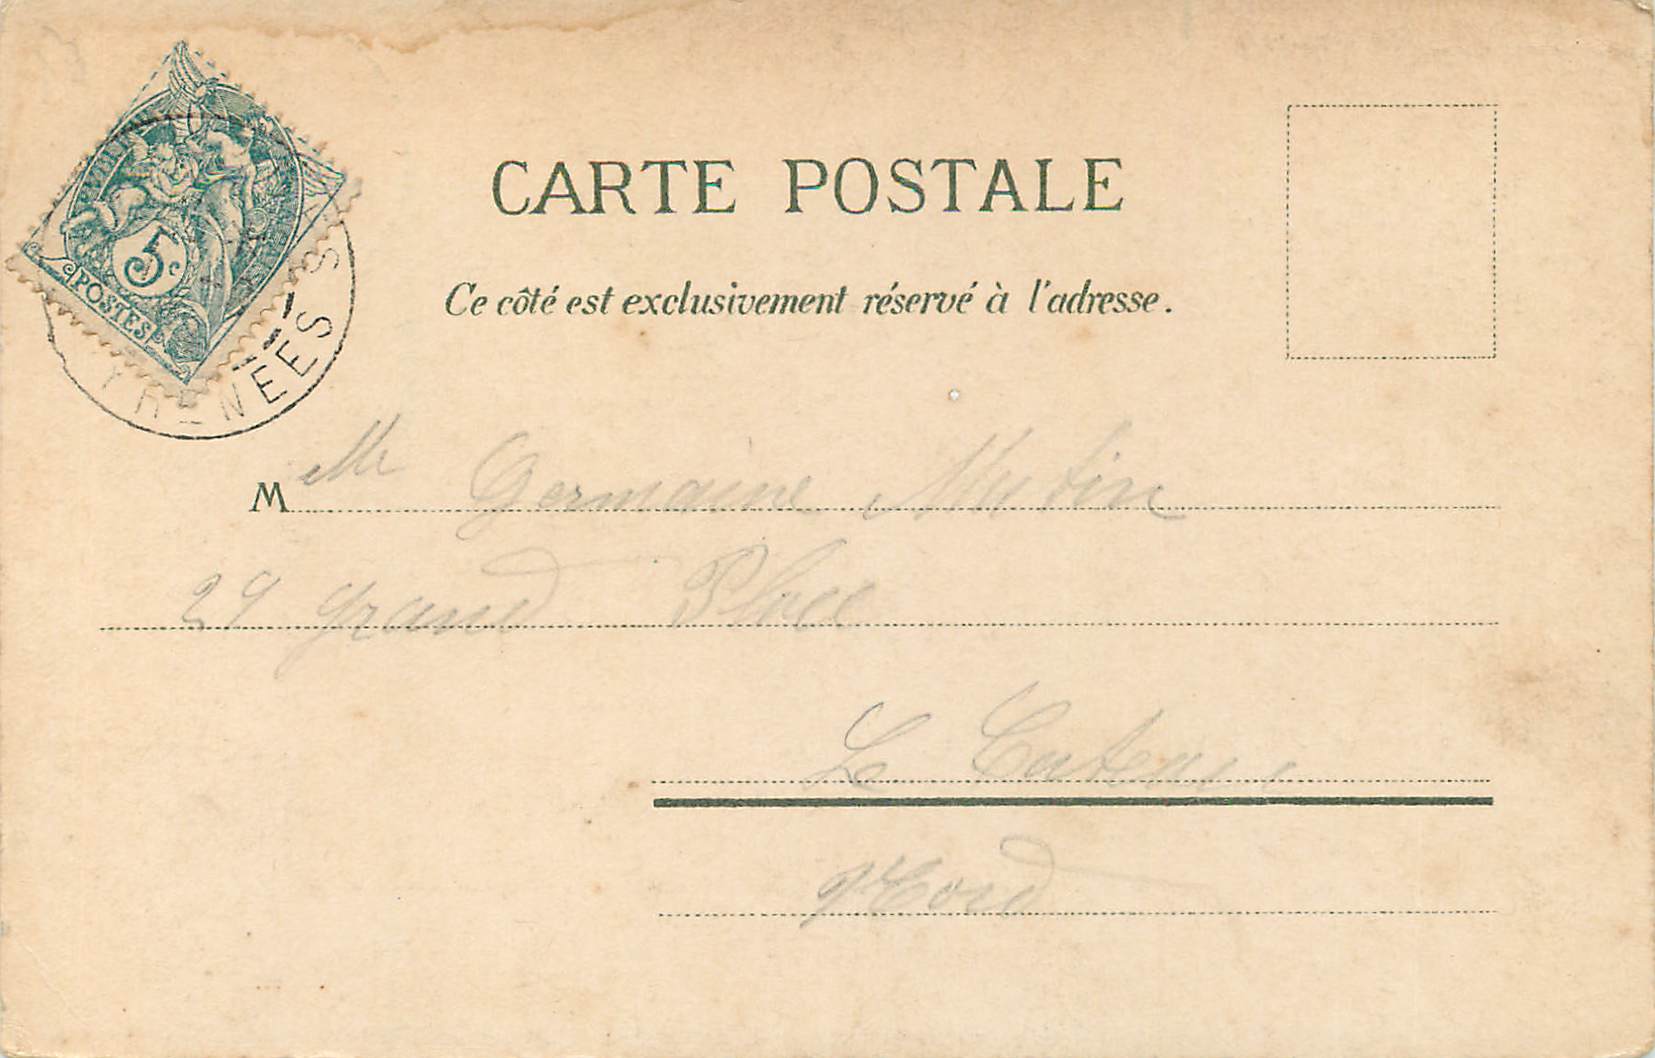 5c
POSTES
NÉES
CARTE POSTALE
Ce côté est exclusivement réservé à l'adresse.
Melle Germaine Mutin
29 Grand Place
Le Cateau
Nord